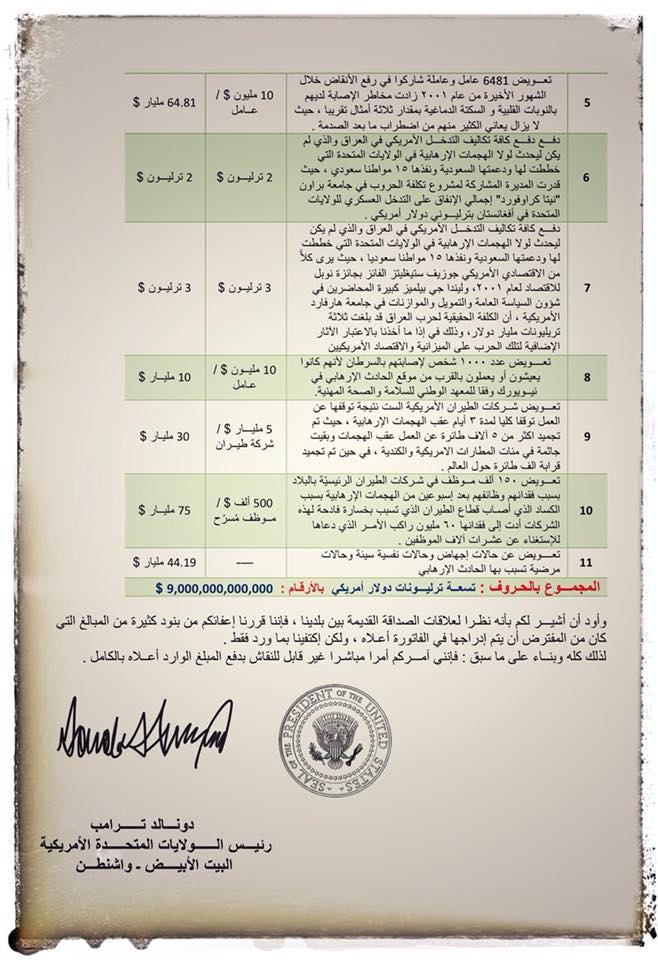 5
تعويض 6481 عامل وعاملة شاركوا في رفع الأنقاض خلال
الشهور الأخيرة من عام ٢٠٠١ زادت مخاطر الإصابة لديهم
بالنوبات القلبية و السكتة الدماغية بمقدار ثلاثة أمثال تقريبا ، حيث
لا يزال يعاني الكثير منهم من اضطراب ما بعد الصدمة .
10 مليون $ /
عامل
64.81 مليار $
6
دفع دفع كافة تكاليف التدخل الأمريكي في العراق والذي لم
يكن ليحدث لولا الهجمات الإرهابية في الولايات المتحدة التي
خططت لها ودعمتها السعودية ونفذها ١٥ مواطنا سعودي ، حيث
قدرت المديرة المشاركة لمشروع تكلفة الحروب في جامعة براون
"نيتا كراوفورد" إجمالي الإنفاق على التدخل العسكري للولايات
المتحدة في أفغانستان بترليوني دولار أمريكي .
2 ترليون $
2 ترليون $
7
دفع كافة تكاليف التدخل الأمريكي في العراق والذي لم يكن
ليحدث لولا الهجمات الإرهابية في الولايات المتحدة التي خططت
لها ودعمتها السعودية ونفذها ١٥ مواطنا سعوديا ، حيث يرى كلاً
من الاقتصادي الأمريكي جوزيف ستيغليتز الفائز بجائزة نوبل
للاقتصاد لعام ٢٠٠١، وليندا جي بيلميز كبيرة المحاضرين في
شؤون السياسة العامة والتمويل والموازنات في جامعة هارفارد
الأمريكية ، أن الكلفة الحقيقية لحرب العراق قد بلغت ثلاثة
تريليونات مليار دولار، وذلك في إذا ما أخذنا بالاعتبار الآثار
الإضافية لتلك الحرب على الميزانية والاقتصاد الأمريكيين
3 ترليون $
3 ترليون $
8
تعويض عدد ١٠٠٠ شخص لإصابتهم بالسرطان لأنهم كانوا
يعيشون أو يعملون بالقرب من موقع الحادث الإرهابي في
نيويورك وفقا للمعهد الوطني للسلامة والصحة المهنية.
10 مليون $ /
عامل
10 مليار $
9
تعويض شركات الطيران الأمريكية الست نتيجة توقفها عن
العمل توقفا كليا لمدة ٣ أيام عقب الهجمات الإرهابية ، حيث تم
تجميد اكثر من ٥ ألاف طائرة عن العمل عقب الهجمات وبقيت
جاثمة في منات المطارات الامريكية والكندية ، في حين تم تجميد
قرابة الف طائرة حول العالم .
5 مليار $ /
شركة طيران
30 مليار $
10
تعويض ١٥٠ ألف موظف في شركات الطيران الرئيسيّة بالبلاد
بسبب فقدانهم وظائفهم بعد إسبوعين من الهجمات الإرهابية بسبب
الكساد الذي أصاب قطاع الطيران الذي تسبب بخسارة فادحة لهذه
الشركات أدت إلى فقدانها ٦٠ مليون راكب الأمر الذي دعاها
للإستغناء عن عشرات ألاف الموظفين .
500 ألف $ /
موظف مُسرّح
75 مليار $
11
تعويض عن حالات إجهاض وحالات نفسية سيئة وحالات
مرضية تسبب بها الحادث الإرهابي
——
44.19 مليار $
المجموع بالحروف : تسعة ترليونات دولار أمريكي بالأرقام : 9,000,000,000,000 $
وأود أن أشير لكم بأنه نظرا لعلاقات الصداقة القديمة بين بلدينا ، فإننا قررنا إعفائكم من بنود كثيرة من المبالغ التي
كان من المفترض أن يتم إدراجها في الفاتورة أعلاه ، ولكن إكتفينا بما ورد فقط .
لذلك كله وبناء على ما سبق : فإنني آمركم أمرا مباشرا غير قابل للنقاش بدفع المبلغ الوارد أعلاه بالكامل .
SEAL OF THE PRESIDENT OF THE UNITED STATES
دونالد ترامب
رئيس الولايات المتحدة الأمريكية
البيت الأبيض - واشنطن